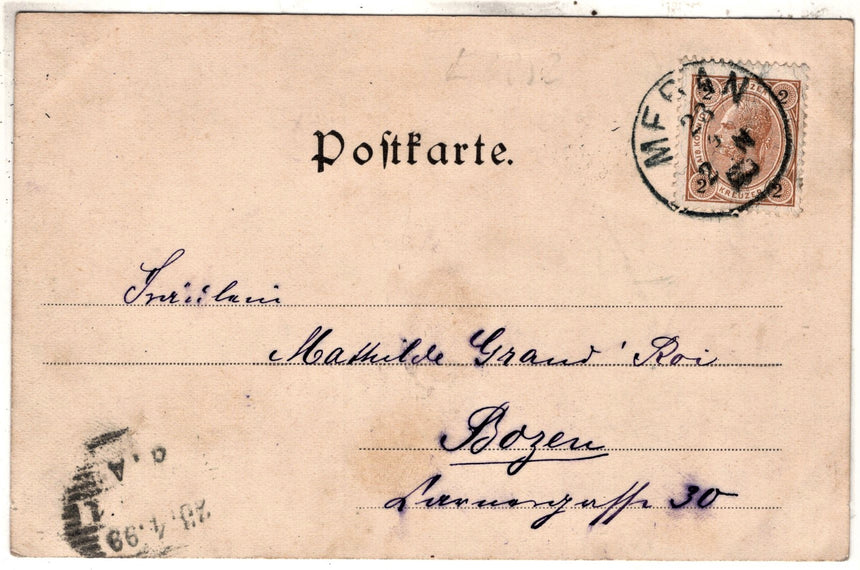 Postkarte.
MERAN
23
2 2
KREUZER
2 2
Fräulein
Mathilde Grand' Roi
Bozen
30
99